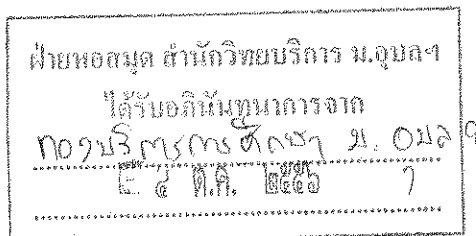 ฝ่ายหอสมุด สำนักวิทยบริการ ม.อุบลฯ
ได้รับอภินันทนาการจาก
กองบริการการศึกษา ม. อุบลฯ
๔ ต.ค. ๒๕๕๖